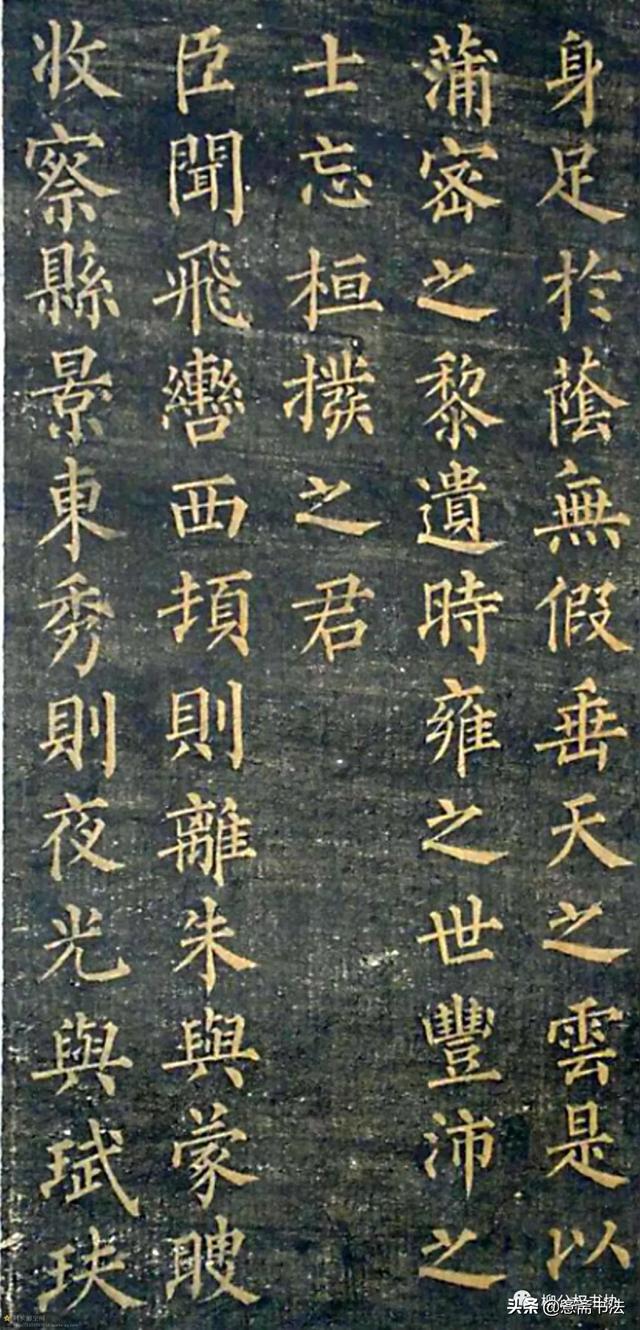 身足於蔭無假垂天之雲是以
蒲密之黎遺時雍之世豐沛之
士忘桓撥之君
臣聞飛轡西頓則離朱與蒙瞍
收察縣景東秀則夜光與珷玞
柳公权书协
头条 斋书法